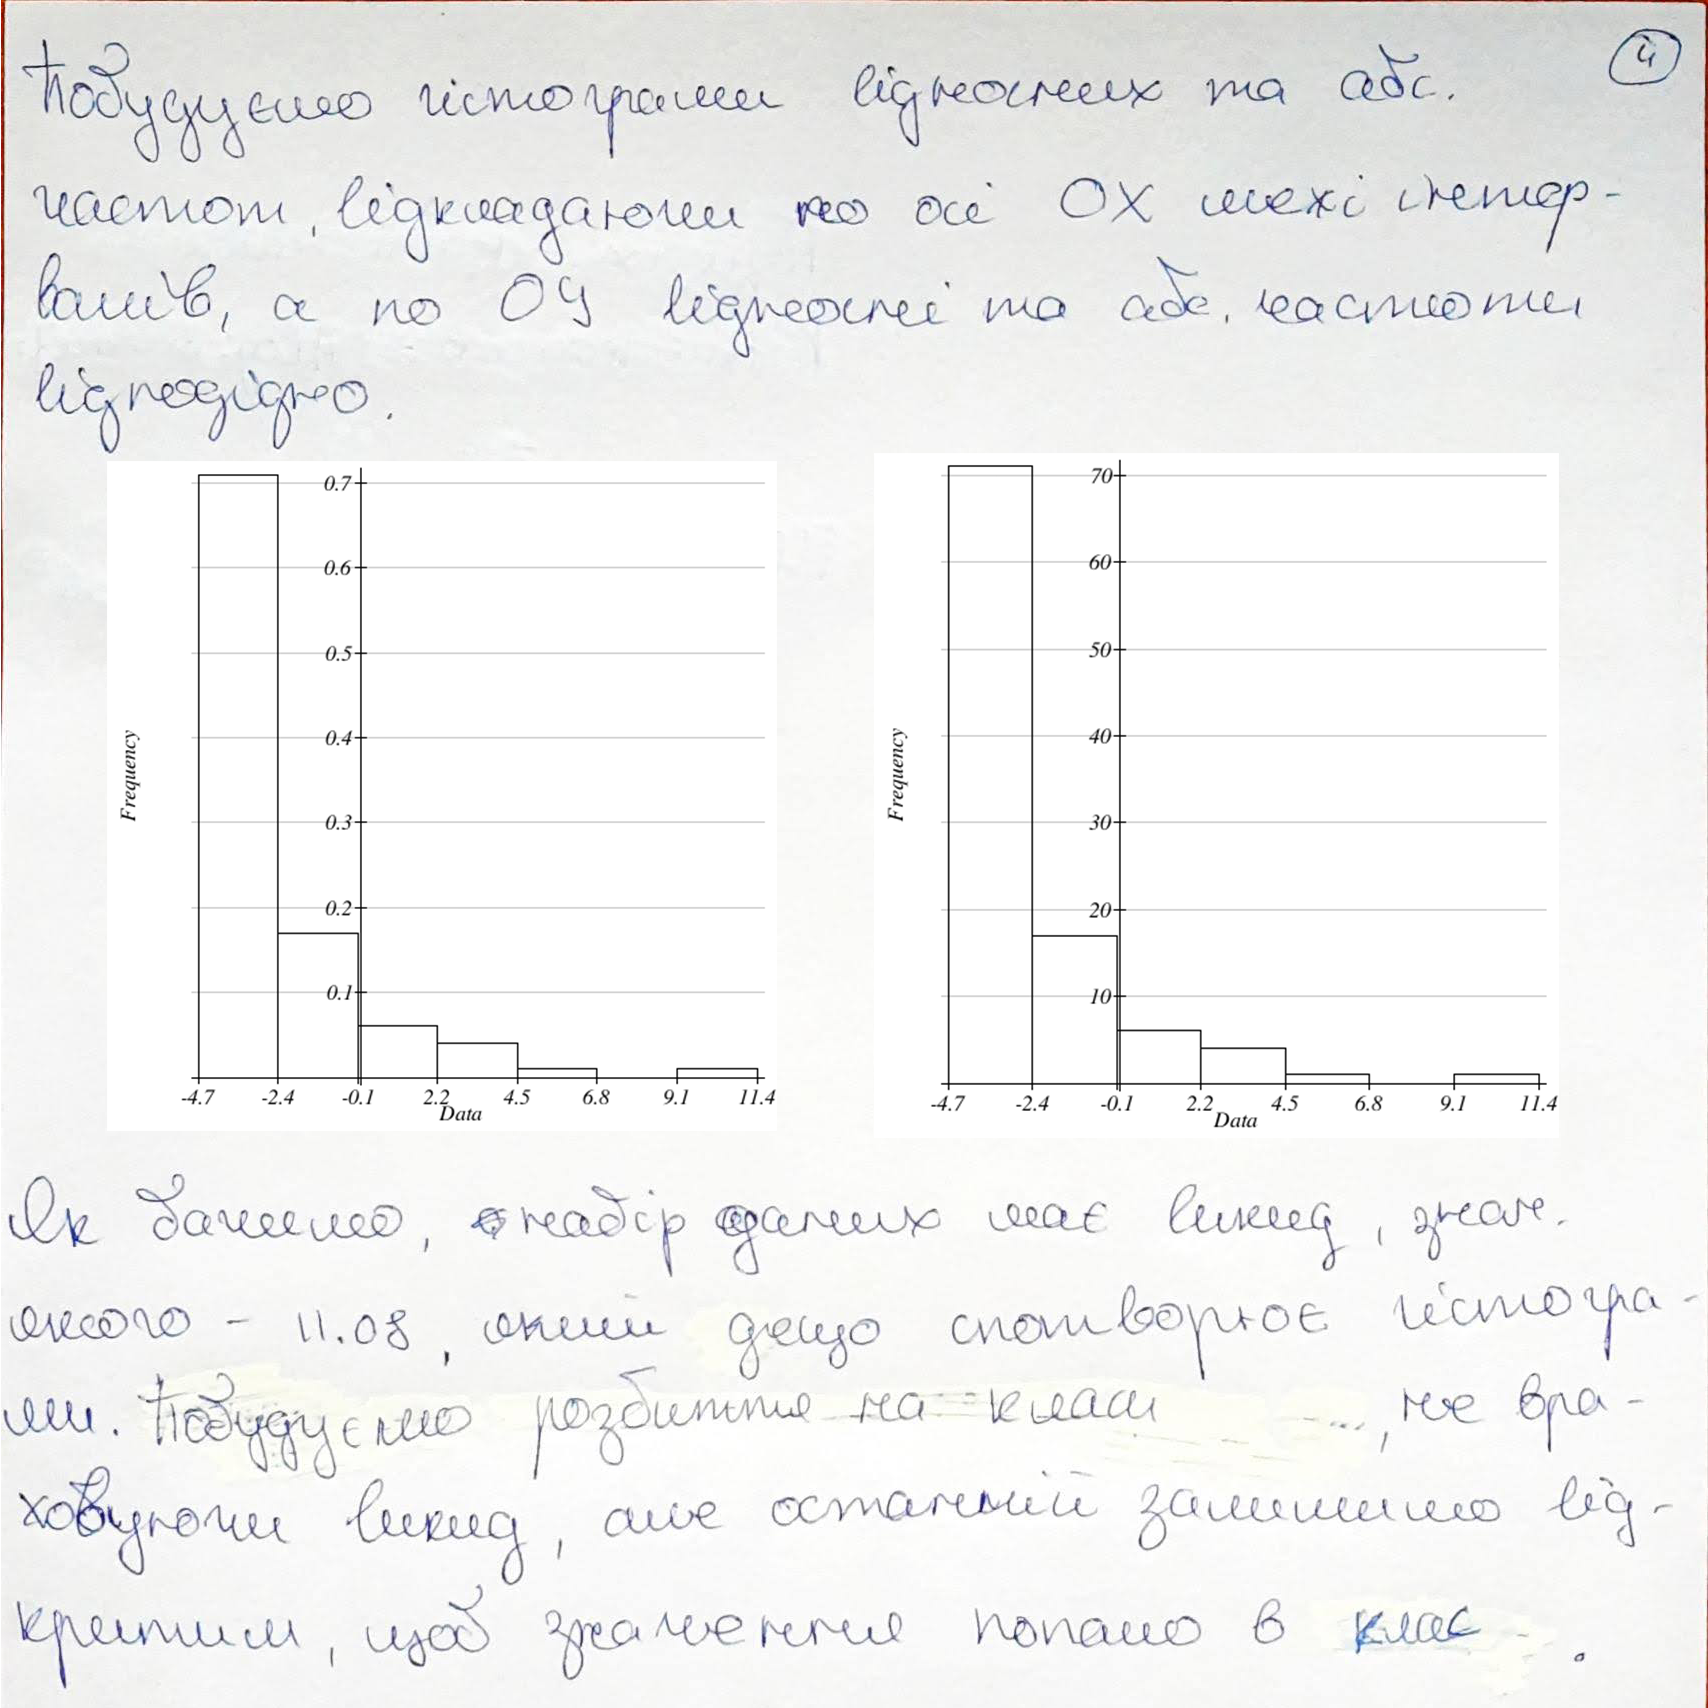 4
Побудуємо гістограми відносних та абс.
частот, відкладаючи по осі OX межі інтер-
валів, а по OY відносні та абс. частоти
відповідно.
0.7
0.6
0.5
0.4
0.3
0.2
0.1
Frequency
-4.7 -2.4 -0.1 2.2 4.5 6.8 9.1 11.4
Data
70
60
50
40
30
20
10
Frequency
-4.7 -2.4 -0.1 2.2 4.5 6.8 9.1 11.4
Data
Як бачимо, набір даних має викид, знач.
якого - 11.08, який дещо спотворює гістогра-
ми. Побудуємо розбиття на класи ..., не вра-
ховуючи викид, але останній залишимо від-
критим, щоб значення попало в клас.